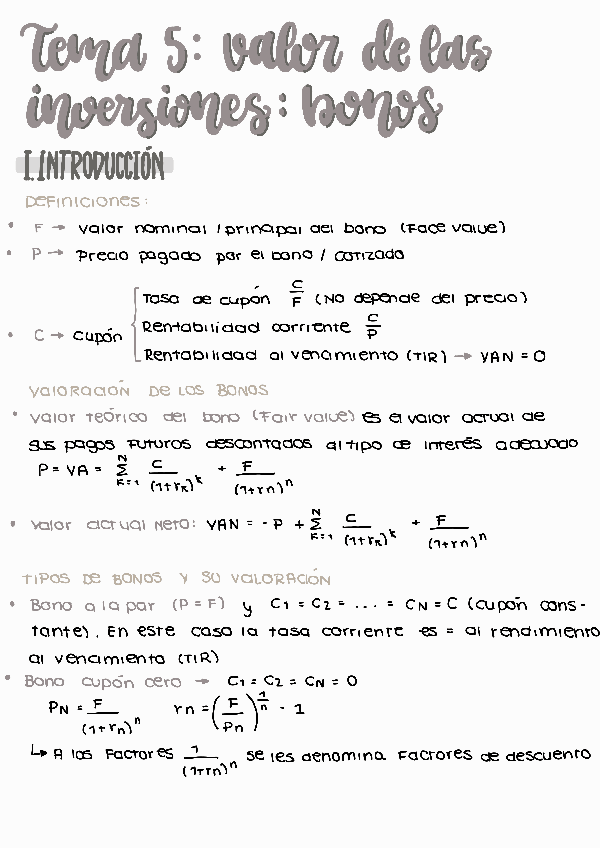 Tema 5: valor de las
inversiones: bonos
I. INTRODUCCIÓN
DEFINICIONES:
• F → Valor nominal / principal del bono (Face value)
• P → Precio pagado por el bono / cotizado
• C → cupón
Tasa de cupón C/F (No depende del precio)
Rentabilidad corriente C/P
Rentabilidad al vencimiento (TIR) → VAN = 0
VALORACIÓN DE LOS BONOS
• Valor teórico del bono (Fair value) es el valor actual de
sus pagos futuros descontados al tipo de interés adecuado
P = VA = Σ_{k=1}^{N} C/(1+r_k)^k + F/(1+rn)^n
• Valor actual Neto: VAN = -P + Σ_{k=1}^{N} C/(1+r_k)^k + F/(1+rn)^n
TIPOS DE BONOS Y SU VALORACIÓN
• Bono a la par (P = F) y C1 = C2 = ... = CN = C (cupón cons-
tante). En este caso la tasa corriente es = al rendimiento
al vencimiento (TIR)
• Bono cupón cero → C1 = C2 = CN = 0
PN = F/(1+rn)^n rn = (F/Pn)^{1/n} - 1
↳ A los factores 1/(1+rn)^n se les denomina factores de descuento